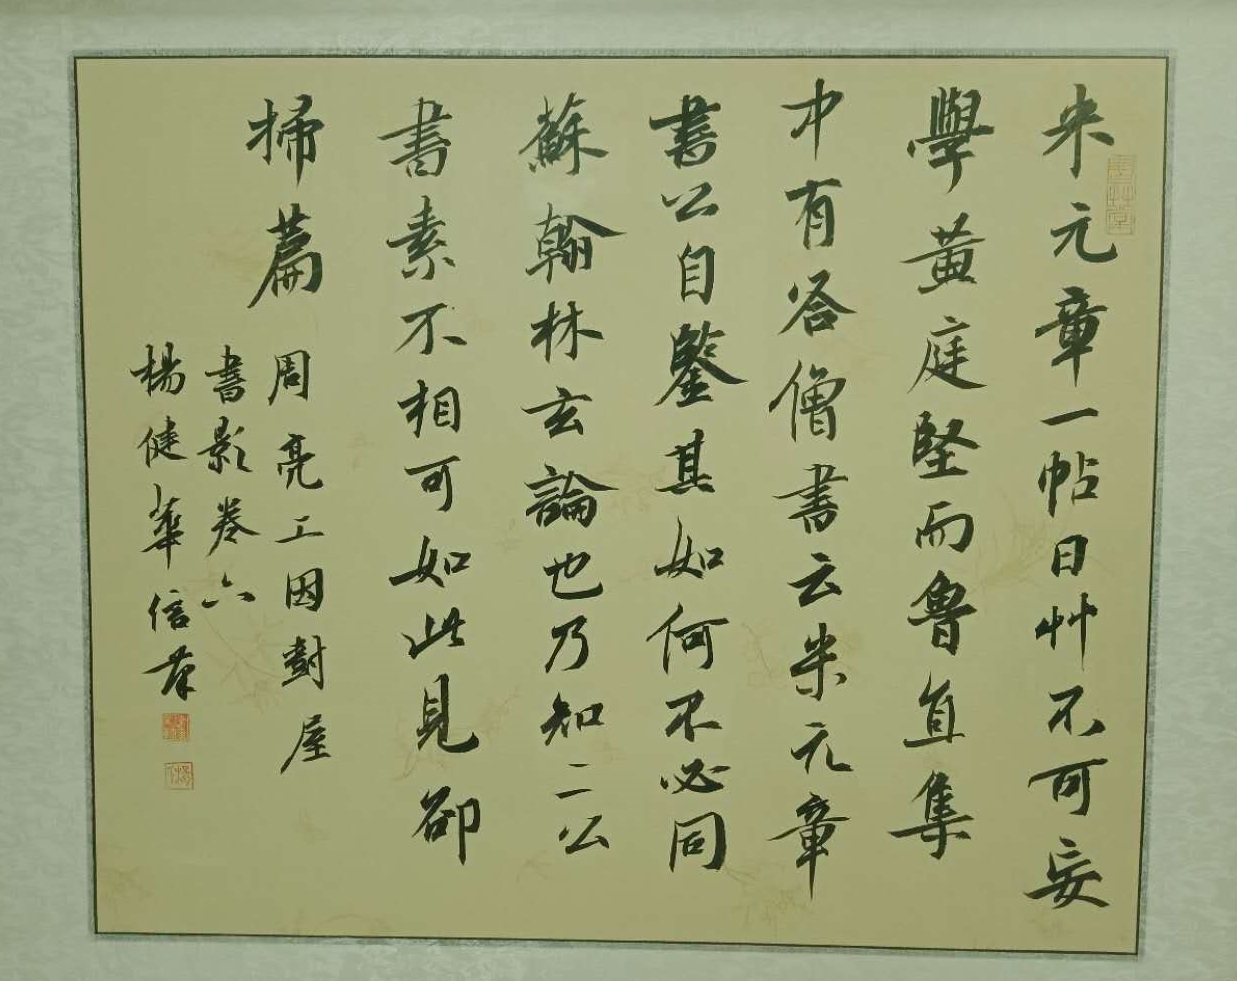 米元章一帖曰艸不可妄
學黃庭堅而魯直集
中有答僧書云米元章
書公自鑒其如何不必同
蘇翰林玄論也乃知二公
書素不相可如此見卻
掃篇
周亮工因樹屋
書影卷六
楊健華信筆